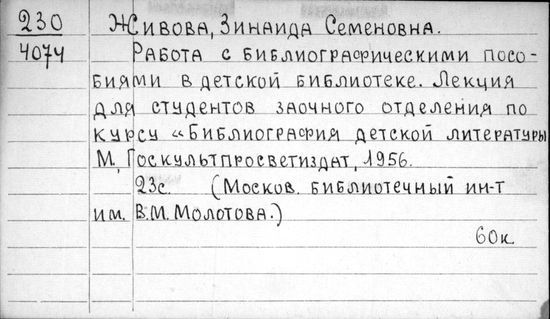 230 Живова, Зинаида Семеновна.
4074 Работа с библиографическими посо-
биями в детской библиотеке. Лекция
для студентов заочного отделения по
курсу «Библиография детской литературы
М, Госкультпросветиздат, 1956.
23с. (Москов. библиотечный ин-т
им. В.М. Молотова.)
60к